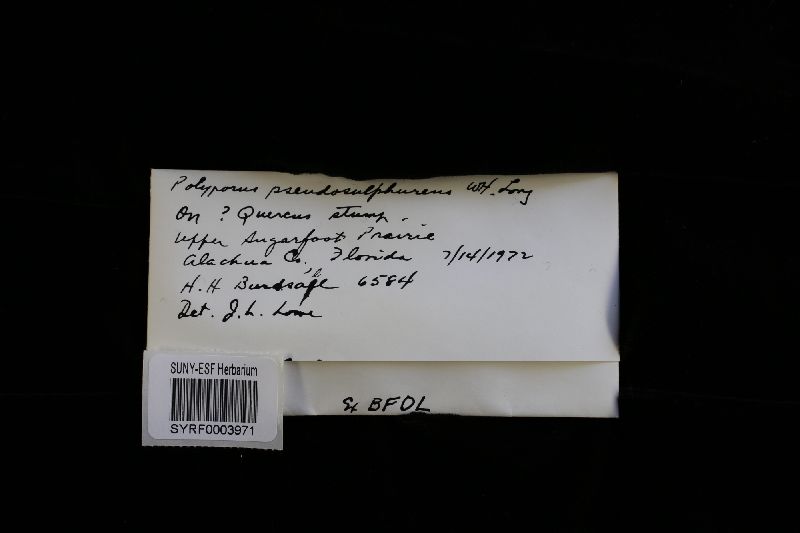 Polyporus pseudosulphureus W.H. Long
On ? Quercus stump.
Upper Sugarfoot Prairie
Alachua Co., Florida 7/14/1972
H. H Burdsall 6584
Det. J. L. Lowe
SUNY-ESF Herbarium
SYRF0003971
Ex BFDL